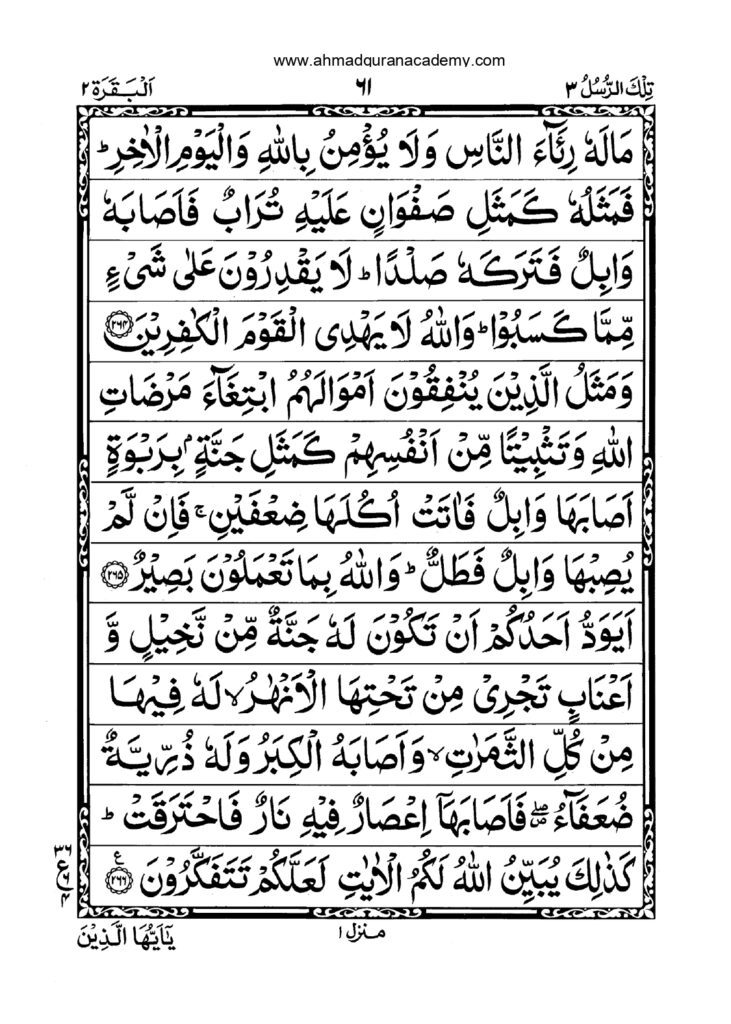 www.ahmadquranacademy.com
تِلْكَ الرُّسُلُ ٣ ٦١ اَلْبَقَرَة ٢
مَالَهٗ رِئَآءَ النَّاسِ وَلَا يُؤْمِنُ بِاللّٰهِ وَالْيَوْمِ الْاٰخِرِؕ
فَمَثَلُهٗ كَمَثَلِ صَفْوَانٍ عَلَيْهِ تُرَابٌ فَاَصَابَهٗ
وَابِلٌ فَتَرَكَهٗ صَلْدًاؕ لَا يَقْدِرُوْنَ عَلٰى شَىْءٍ
مِّمَّا كَسَبُوْاؕ وَاللّٰهُ لَا يَهْدِى الْقَوْمَ الْكٰفِرِيْنَ ۝۲۶۴
وَمَثَلُ الَّذِيْنَ يُنْفِقُوْنَ اَمْوَالَهُمُ ابْتِغَآءَ مَرْضَاتِ
اللّٰهِ وَتَثْبِيْتًا مِّنْ اَنْفُسِهِمْ كَمَثَلِ جَنَّةٍۭ بِرَبْوَةٍ
اَصَابَهَا وَابِلٌ فَاٰتَتْ اُكُلَهَا ضِعْفَيْنِۚ فَاِنْ لَّمْ
يُصِبْهَا وَابِلٌ فَطَلٌّؕ وَاللّٰهُ بِمَا تَعْمَلُوْنَ بَصِيْرٌ ۝۲۶۵
اَيَوَدُّ اَحَدُكُمْ اَنْ تَكُوْنَ لَهٗ جَنَّةٌ مِّنْ نَّخِيْلٍ وَّ
اَعْنَابٍ تَجْرِىْ مِنْ تَحْتِهَا الْاَنْهٰرُۙ لَهٗ فِيْهَا
مِنْ كُلِّ الثَّمَرٰتِۙ وَاَصَابَهُ الْكِبَرُ وَلَهٗ ذُرِّيَّةٌ
ضُعَفَآءُۖ فَاَصَابَهَاۤ اِعْصَارٌ فِيْهِ نَارٌ فَاحْتَرَقَتْؕ
كَذٰلِكَ يُبَيِّنُ اللّٰهُ لَكُمُ الْاٰيٰتِ لَعَلَّكُمْ تَتَفَكَّرُوْنَ ۝۲۶۶ ع
٣٦
ع
٦
٤
منزل ١
يٰۤاَيُّهَا الَّذِيْنَ